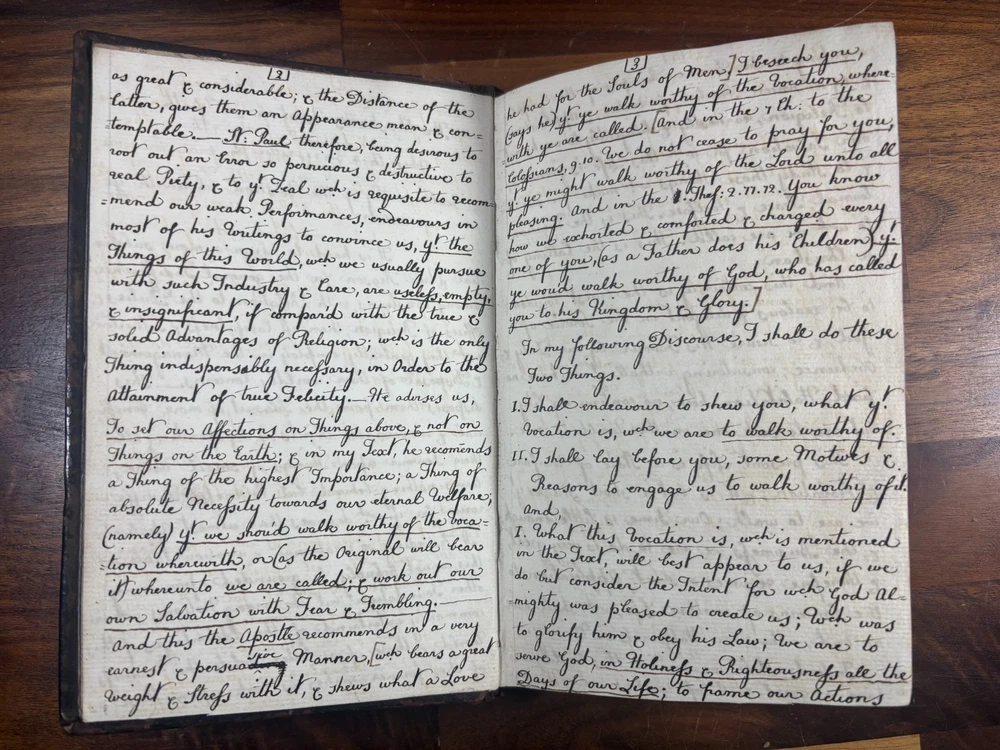 [2]
as great & considerable; & the Distance of the
latter, gives them an Appearance mean & con=
temptable.— St. Paul therefore, being desirous to
root out an Error so pernicious & destructive to
real Piety, & to yt. Zeal wch is requisite to recom=
=mend our weak Performances, endeavours in
most of his Writings to convince us, yt. the
Things of this World, wch we usually pursue
with such Industry & Care, are useless, empty,
& insignificant, if compard with the true &
solid Advantages of Religion; wch is the only
Thing indispensably necessary, in Order to the
Attainment of true Felicity.— He advises us,
To set our Affections on Things above, & not on
Things on the Earth; & in my Text, he recomends
a Thing of the highest Importance; a Thing of
absolute Necessity towards our eternal Welfare;
(namely) yt. we shou'd walk worthy of the voca=
=tion wherewith, or (as the Original will bear
it) whereunto we are called; & work out our
own Salvation with Fear & Trembling.
And this the Apostle recommends in a very
earnest & persuasive Manner, [wch bears a great
Weight & Stress with it, & shews what a Love
[3]
he had for the Souls of Men] I beseech you,
(says he) yt. ye walk worthy of the Vocation, where=
=with ye are called. [And in the 1 Ch: to the
Colossians, 9.10. We do not cease to pray for you,
yt. ye might walk worthy of the Lord unto all
pleasing. And in the 1. Thes: 2.11.12. You know
how we exhorted & comforted & charged every
one of you, (as a Father does his Children) yt.
ye woud walk worthy of God, who has called
you to his Kingdom & Glory.]
In my following Discourse, I shall do these
Two Things.
I. I shall endeavour to shew you, what yt.
Vocation is, wch we are to walk worthy of.
II. I shall lay before you, some Motives &
Reasons to engage us to walk worthy of it.
And,
I. What this Vocation is, wch is mentioned
in the Text, will best appear to us, if we
do but consider the Intent for wch God Al=
=mighty was pleased to create us; Wch was
to glorify him & obey his Law; We are to
serve God, in Holiness & Righteousness all the
Days of our Life; to frame our Actions